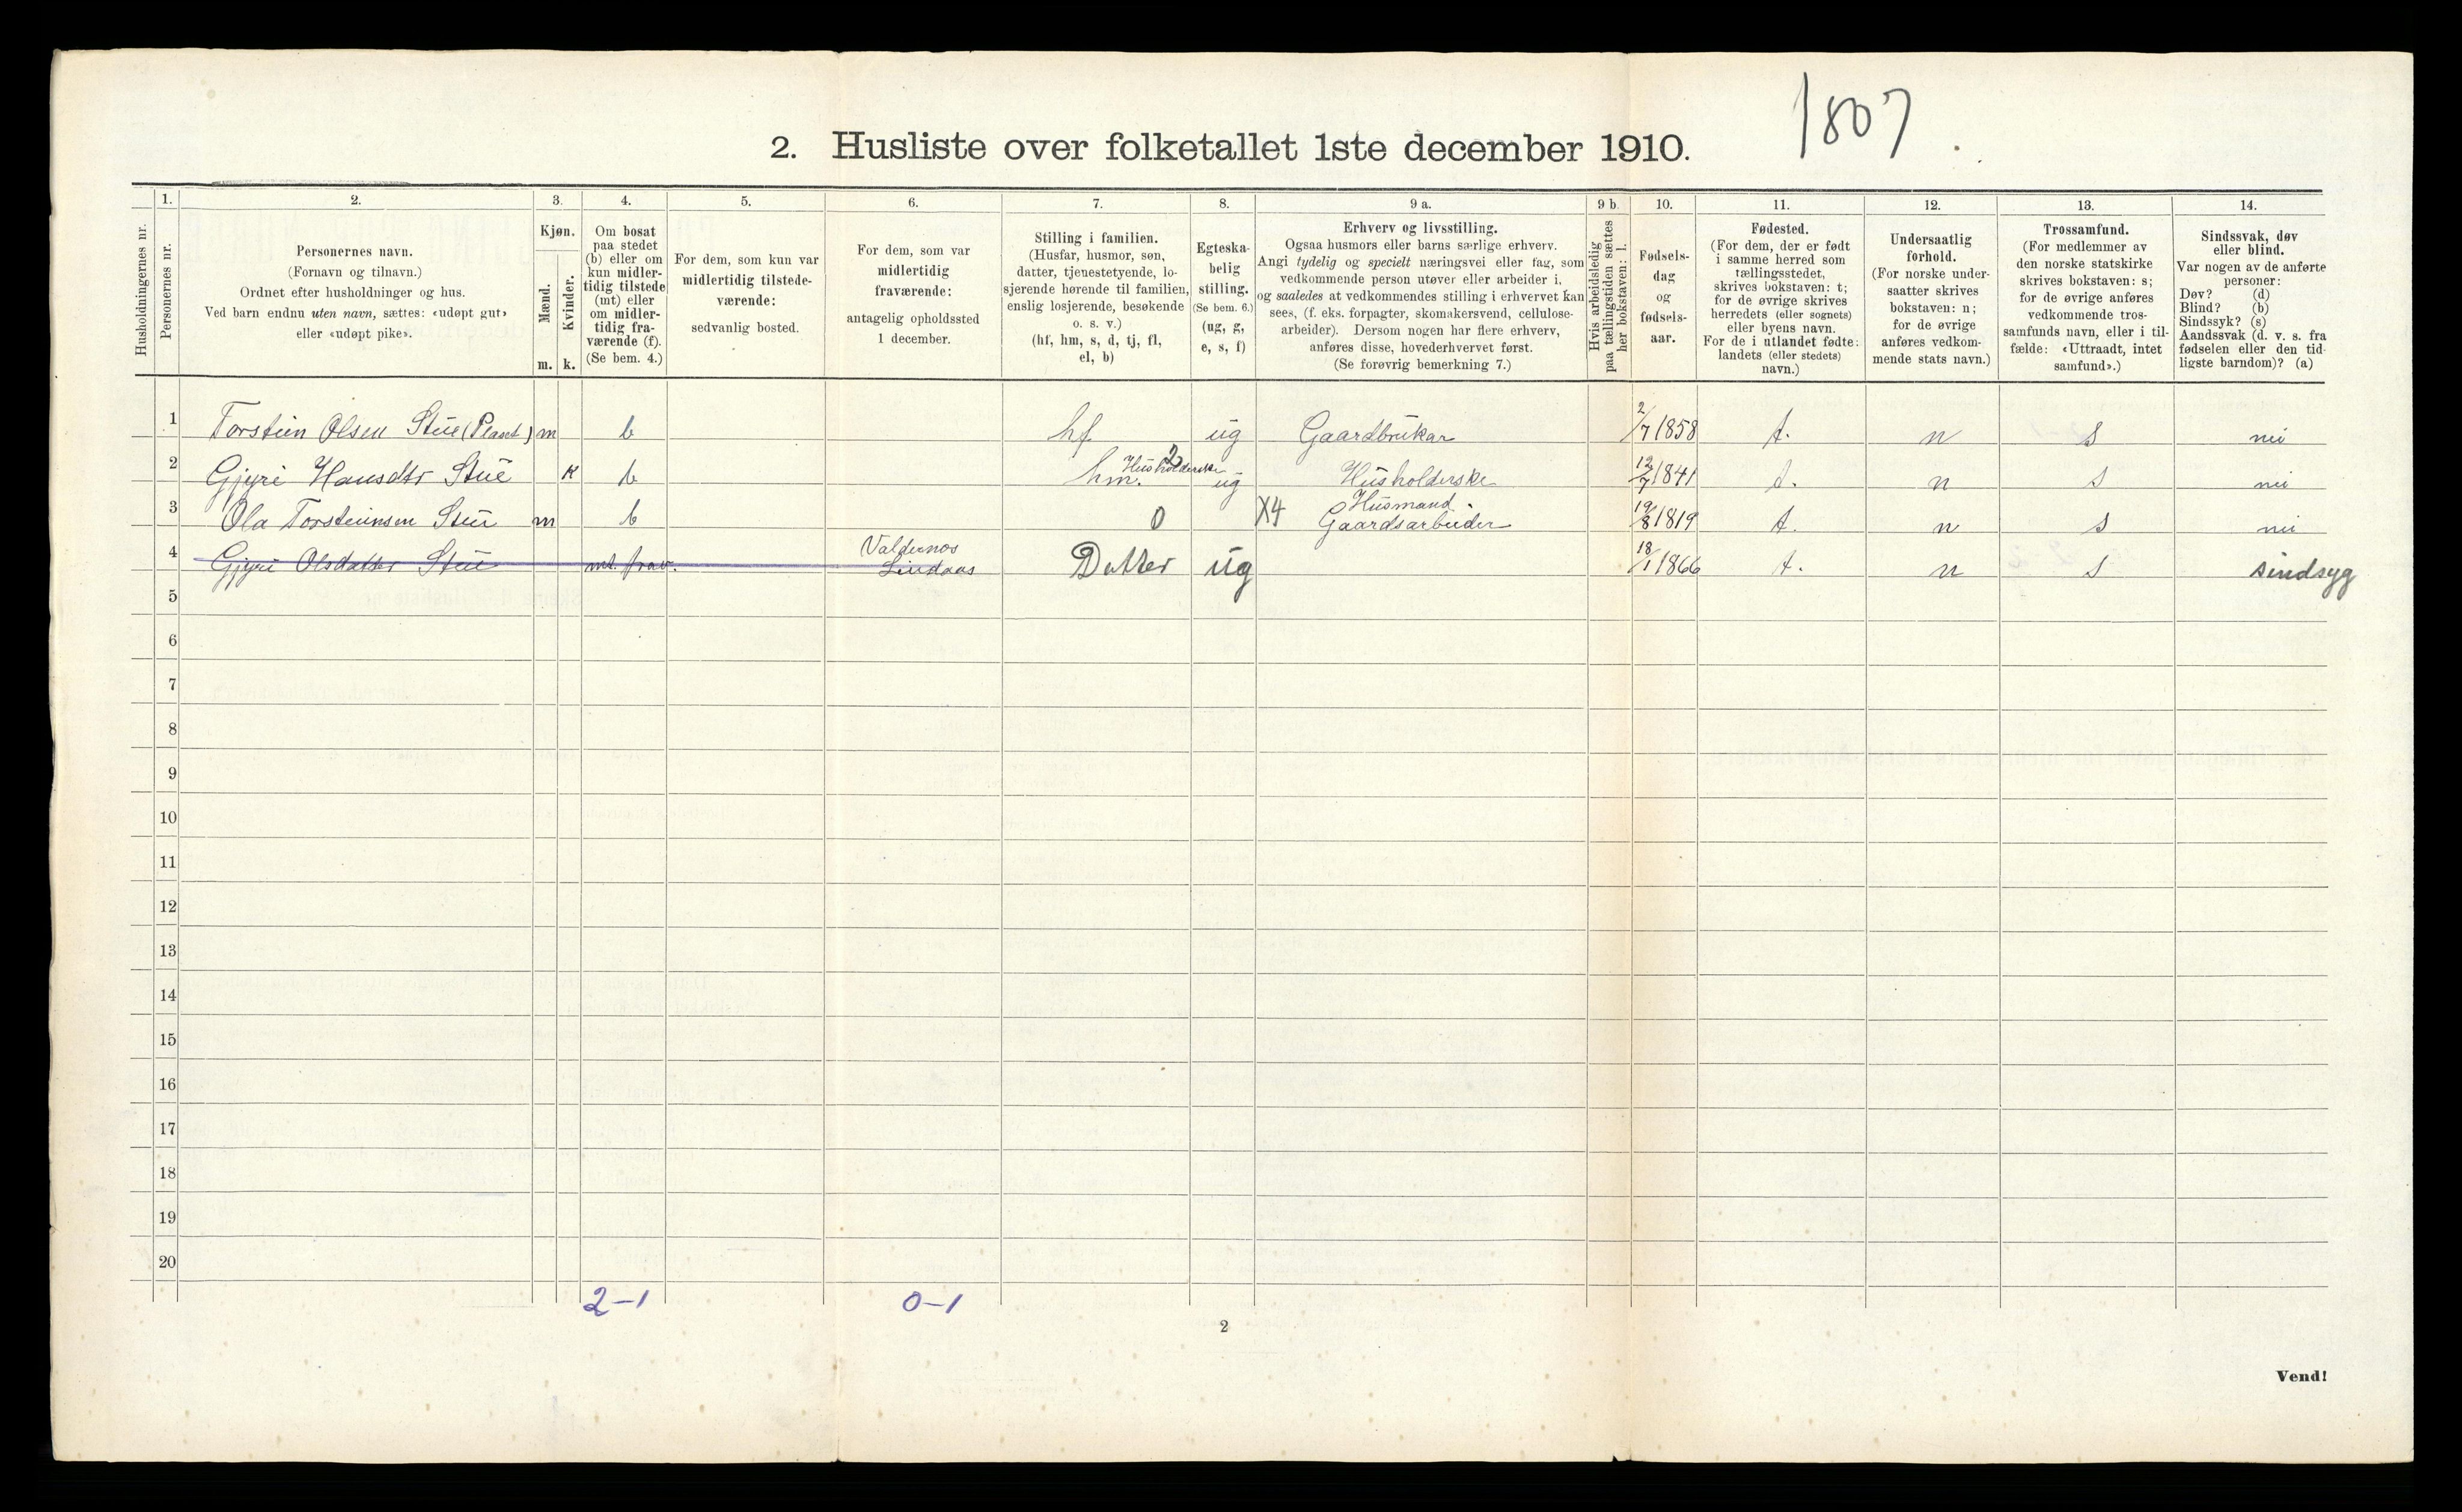 1807
2. Husliste over folketallet 1ste december 1910.
Husholdningernes nr.
1.
Personernes nr.
2.
Personernes navn.
(Fornavn og tilnavn.)
Ordnet efter husholdninger og hus.
Ved barn endnu uten navn, sættes: «udøpt gut»
eller «udøpt pike».
3.
Kjøn.
Mænd.
m.
Kvinder.
k.
4.
Om bosat
paa stedet
(b) eller om
kun midler-
tidig tilstede
(mt) eller
om midler-
tidig fra-
værende (f).
(Se bem. 4.)
5.
For dem, som kun var
midlertidig tilstede-
værende:
sedvanlig bosted.
6.
For dem, som var
midlertidig
fraværende:
antagelig opholdssted
1 december.
7.
Stilling i familien.
(Husfar, husmor, søn,
datter, tjenestetyende, lo-
sjerende hørende til familien,
enslig losjerende, besøkende
o. s. v.)
(hf, hm, s, d, tj, fl,
el, b)
8.
Egteska-
belig
stilling.
(Se bem. 6.)
(ug, g,
e, s, f)
9 a.
Erhverv og livsstilling.
Ogsaa husmors eller barns særlige erhverv.
Angi tydelig og specielt næringsvei eller fag, som
vedkommende person utøver eller arbeider i,
og saaledes at vedkommendes stilling i erhvervet kan
sees, (f. eks. forpagter, skomakersvend, cellulose-
arbeider). Dersom nogen har flere erhverv,
anføres disse, hovederhvervet først.
(Se forøvrig bemerkning 7.)
9 b.
Hvis arbeidsledig
paa tællingstiden sættes
her bokstaven: l.
10.
Fødsels-
dag
og
fødsels-
aar.
11.
Fødested.
(For dem, der er født
i samme herred som
tællingsstedet,
skrives bokstaven: t;
for de øvrige skrives
herredets (eller sognets)
eller byens navn.
For de i utlandet fødte:
landets (eller stedets)
navn.)
12.
Undersaatlig
forhold.
(For norske under-
saatter skrives
bokstaven: n;
for de øvrige
anføres vedkom-
mende stats navn.)
13.
Trossamfund.
(For medlemmer av
den norske statskirke
skrives bokstaven: s;
for de øvrige anføres
vedkommende tros-
samfunds navn, eller i til-
fælde: «Uttraadt, intet
samfund».)
14.
Sindssvak, døv
eller blind.
Var nogen av de anførte
personer:
Døv? (d)
Blind? (b)
Sindssyk? (s)
Aandssvak (d. v. s. fra
fødselen eller den tid-
ligste barndom)? (a)
1 Torstein Olsen Stue (Plasset) m b hf ug Gaardbrukar 2/7 1858 t. n s nei
2 Gjyri Hansdtr Stue k b hm. Husholderske 2 ug Husholderske 12/7 1841 t. n s nei
3 Ola Torsteinsen Stue m b 0 X4 Husmand. Gaardsarbeider 19/8 1819 t. n s nei
4 Gjyri Olsdatter Stue mt. frav. Valdernos Lindaas Datter ug 18/1 1866 t. n s sindsyg
5
6
7
8
9
10
11
12
13
14
15
16
17
18
19
20
2-1 0-1
2
Vend!